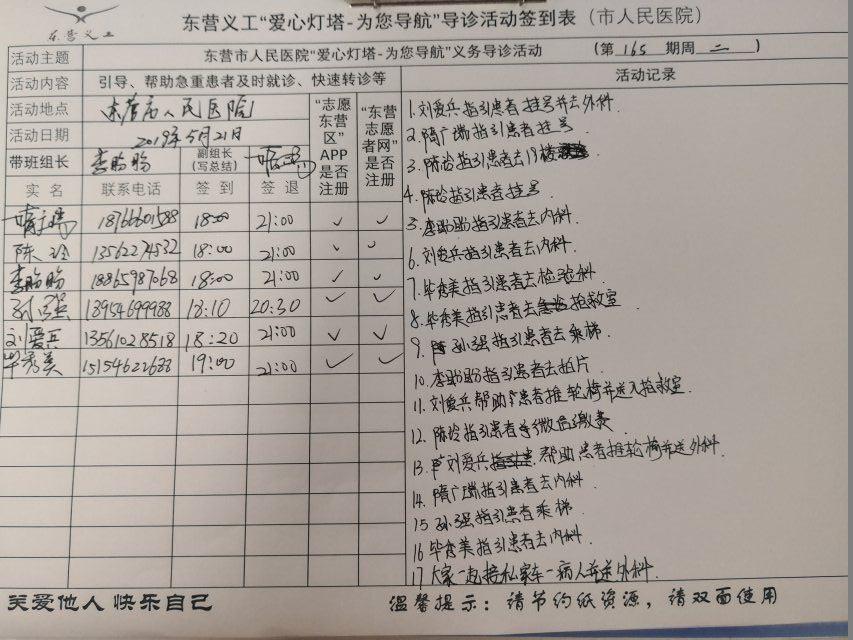 东营义工“爱心灯塔-为您导航”导诊活动签到表（市人民医院）
东营义工
活动主题 东营市人民医院“爱心灯塔-为您导航”义务导诊活动 （第165期周二）
活动内容 引导、帮助急重患者及时就诊、快速转诊等 活动记录
活动地点 东营市人民医院
活动日期 2019年5月21日
带班组长 李盼盼 副组长（写总结）
“志愿东营区”APP是否注册 “东营志愿者网”是否注册
实名 联系电话 签到 签退
隋广瑞 18766601588 18:00 21:00 ✓ ✓
陈玲 13562274532 18:00 21:00 ✓ ✓
李盼盼 18865987068 18:00 21:00 ✓ ✓
孙强 18954699988 18:10 20:30 ✓ ✓
刘爱兵 13561028518 18:20 21:00 ✓ ✓
毕秀美 15154622633 19:00 21:00 ✓ ✓
1.刘爱兵指引患者挂号并去外科.
2.隋广瑞指引患者挂号
3.陈玲指引患者去19楼
4.陈玲指引患者挂号
5.李盼盼指引患者去内科.
6.刘爱兵指引患者去内科.
7.毕秀美指引患者去检验科.
8.毕秀美指引患者去抢救室
9.孙强指引患者去乘梯
10.李盼盼指引患者去拍片
11.刘爱兵帮助患者推轮椅并送入抢救室.
12.陈玲指引患者缴费
13.刘爱兵帮助患者推轮椅并送外科.
14.隋广瑞指引患者去内科.
15 孙强指引患者乘梯.
16 毕秀美指引患者去内科.
17 大家一起接私家车一病人并送外科.
关爱他人 快乐自己 温馨提示：请节约纸资源，请双面使用